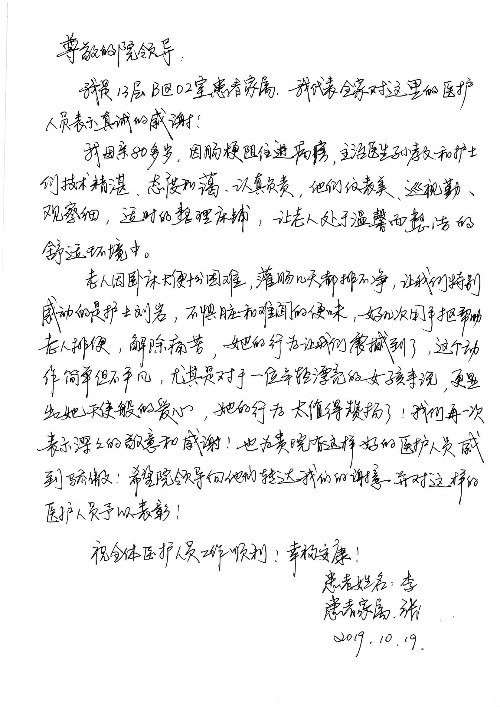 尊敬的院领导:
我是13层B区02室患者家属.我代表全家对这里的医护
人员表示真诚的感谢!
我母亲80多岁,因肠梗阻住进病房,主治医生孙孝文和护士
们技术精湛、态度和蔼、认真负责,他们仪表美、巡视勤、
观察细,适时的整理床铺,让老人处于温馨而整洁的
舒适环境中。
老人因卧床大便十分困难,灌肠几天都排不净,让我们特别
感动的是护士刘岩,不惧脏和难闻的便味,好几次用手抠帮助
老人排便,解除痛苦,她的行为让我们震撼到了,这个动
作简单但不平凡,尤其是对于一位年轻漂亮的女孩来说,更显
出她天使般的爱心,她的行为太值得赞扬了!我们再一次
表示深深的敬意和感谢!也为贵院有这样好的医护人员感
到骄傲!希望院领导向他们转达我们的谢意,并对这样的
医护人员予以表彰!
祝全体医护人员工作顺利!幸福安康!
患者姓名:李
患者家属:张
2019.10.19.